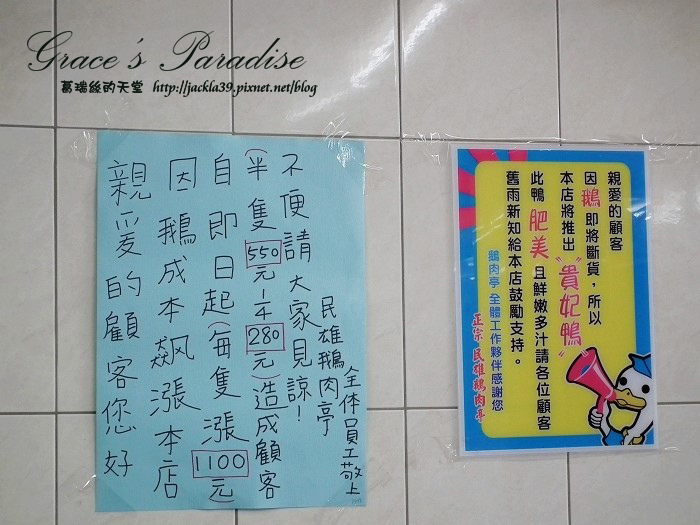 Grace's Paradise
葛瑞絲的天堂 http://jackla39.pixnet.net/blog
親愛的顧客您好
因鵝成本飆漲本店
自即日起(每隻漲1100元
(半隻550元-¼280元)造成顧客
不便請大家見諒!
民雄鵝肉亭
全体員工敬上
親愛的顧客
因鵝即將斷貨,所以
本店將推出"貴妃鴨"
此鴨肥美且鮮嫩多汁請各位顧客
舊雨新知給本店鼓勵支持。
鵝肉亭 全體工作夥伴感謝您
正宗 民雄鵝肉亭